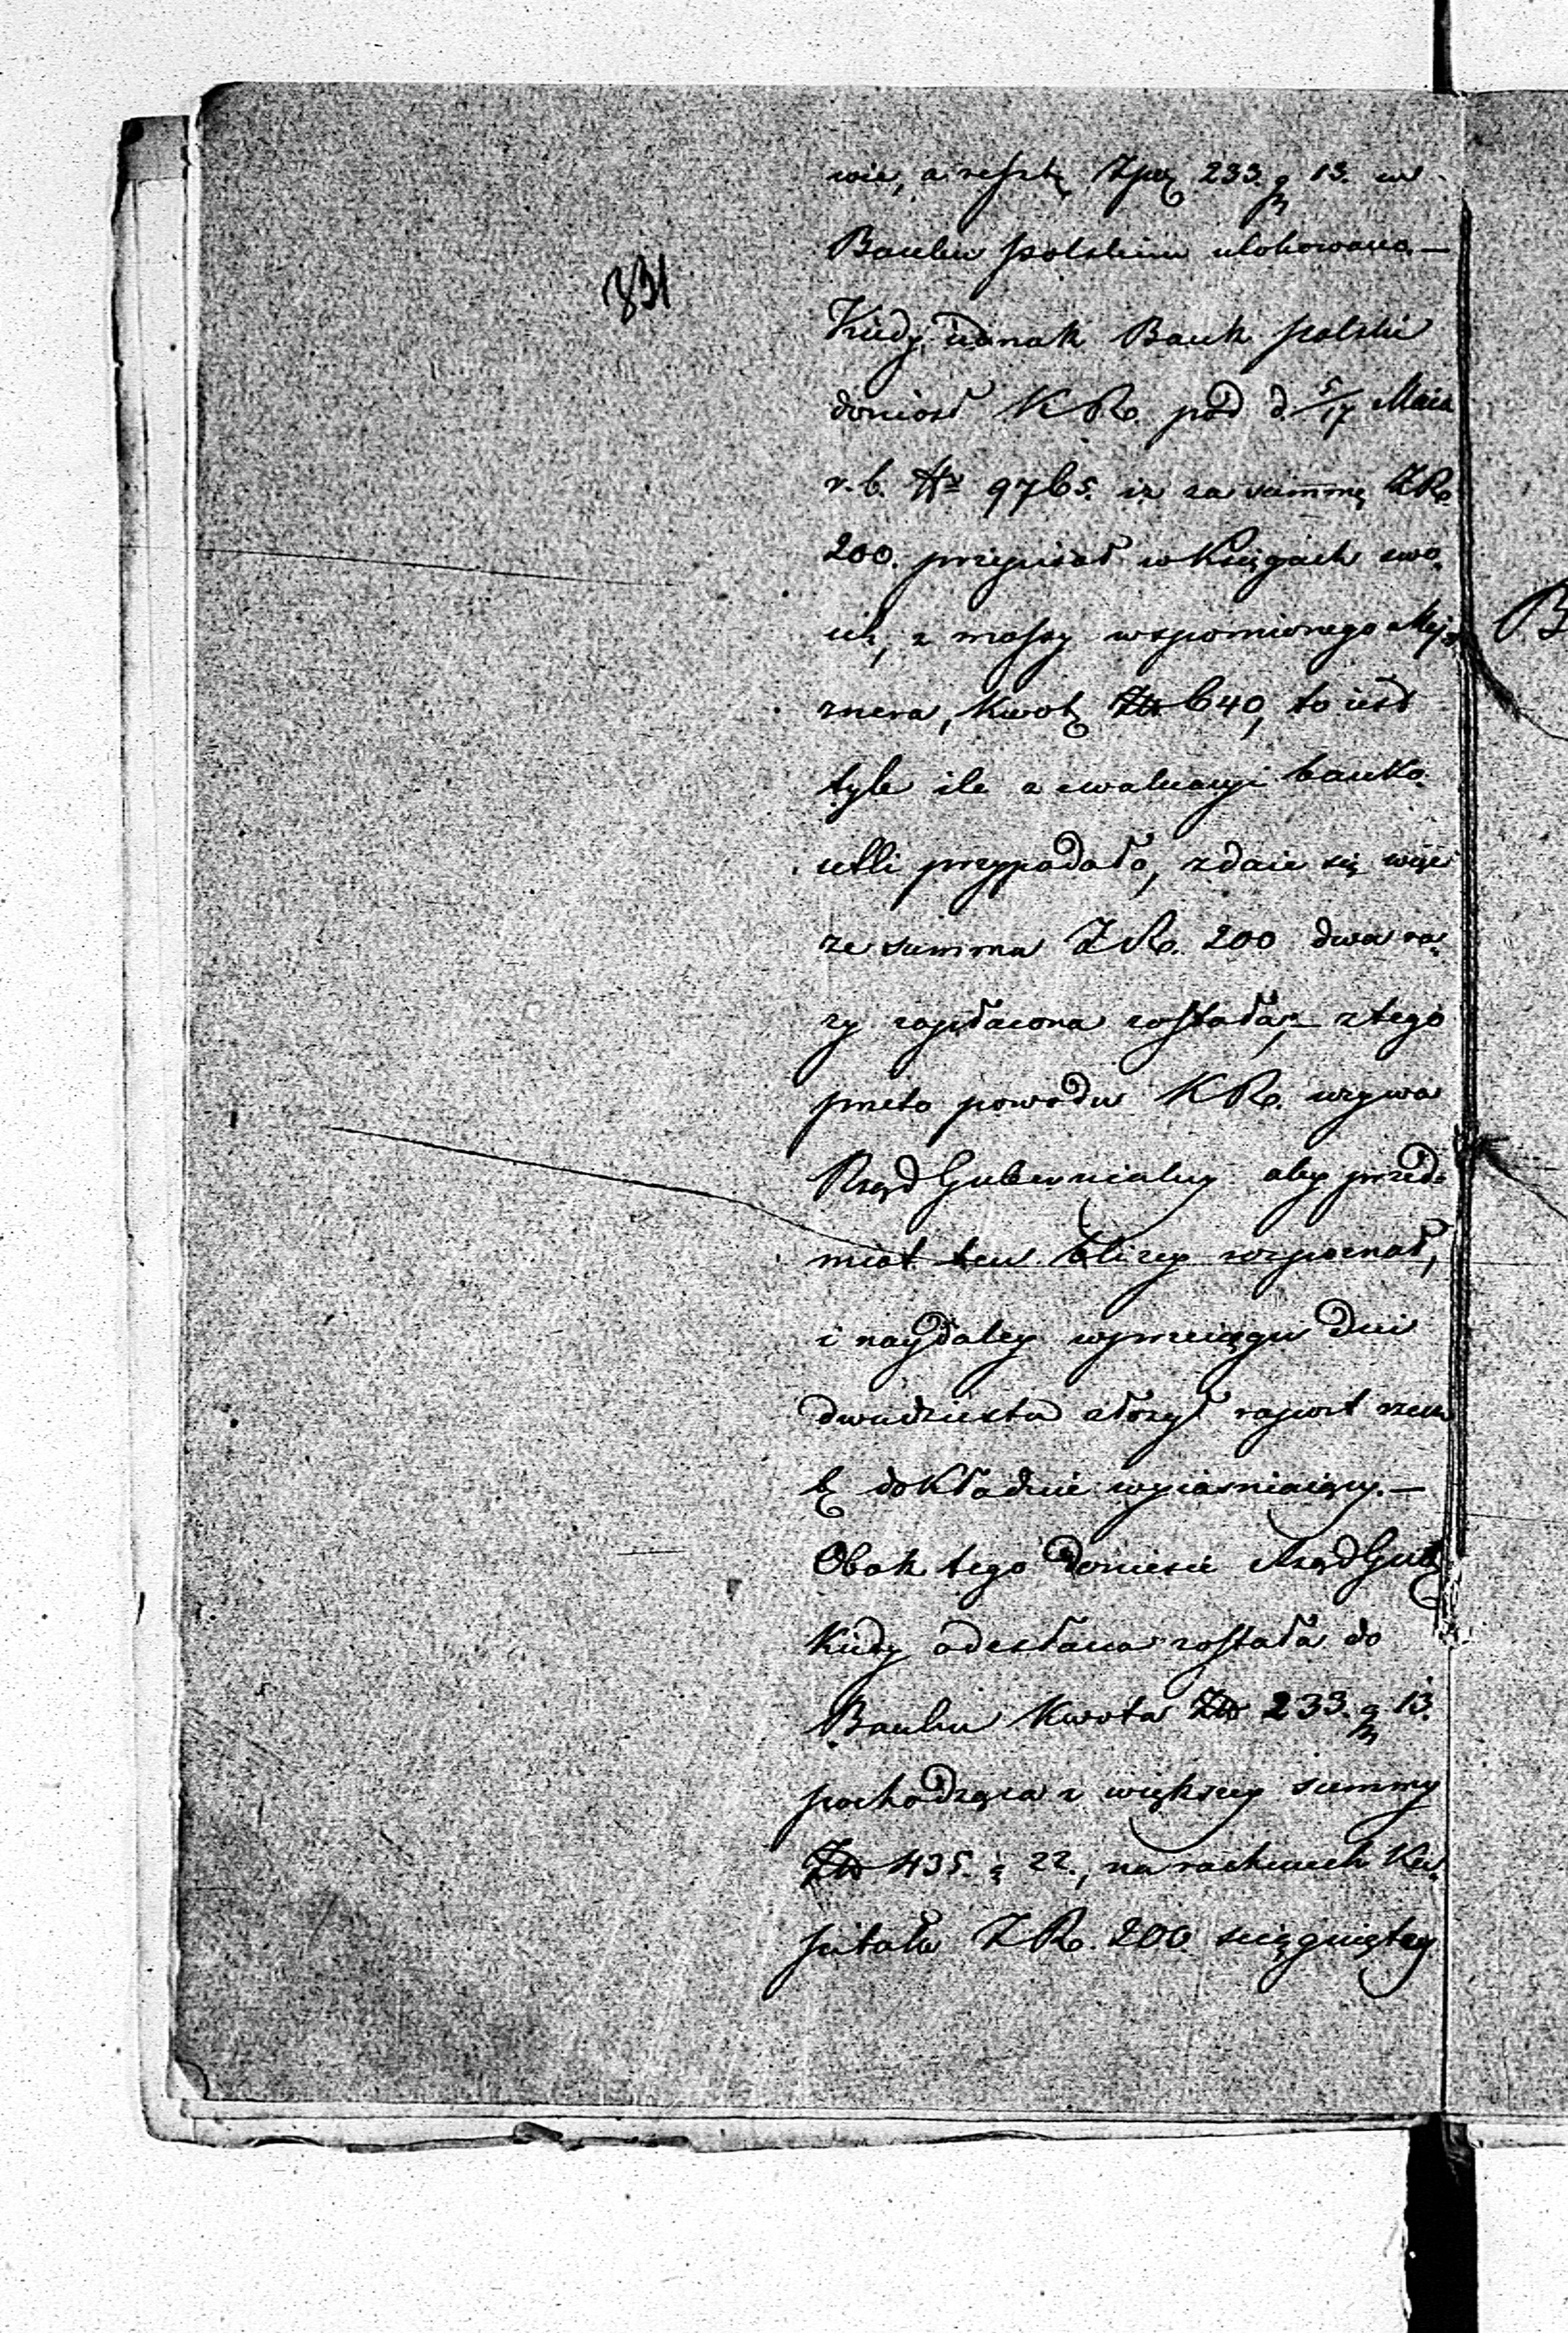 wie, a resztę Złp. 233. g 13. w
Banku polskim ulokowano. —
Kiedy iednak Bank polski
doniosł K R. pod d. 5/17 Maia
r. b. Nr 9765. iz za summę ZR.
200. przepisał w Księgach swo-
ich, z massy wspomionego Mej-
znera, kwotę Złp 640, to iest
tyle ile z ewaluacyi banko
cetli przypadało, zdaie się więc
ze summa ZR. 200 dwa ra-
zy zapłacona została, — z tego
przeto powodu K R. wzywa
Rząd Gubernialny aby przed-
miot ten bliżey rozpoznał,
i naydaley w przeciągu dni
dwudziestu złożył raport rzecz
tę dokładnie wyiaśniaiący. —
Obok tego doniesie Rząd Gub.
kiedy odesłana została do
Banku kwota Złp 233. g 13.
pochodząca z większey summy
Złp 435. g 22., na rachunek Ka-
pitału ZR. 200. ściągniętey
831